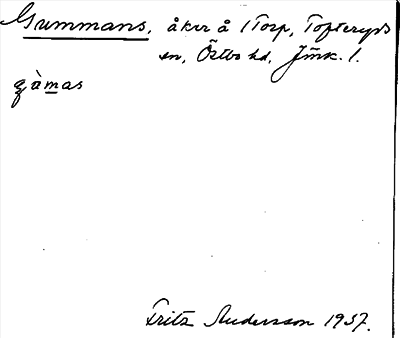 Gummans, åker å 1 Torp, Tofteryds
sn, Östbo hd, Jönk. l.
gàmas
Fritz Andersson 1937.